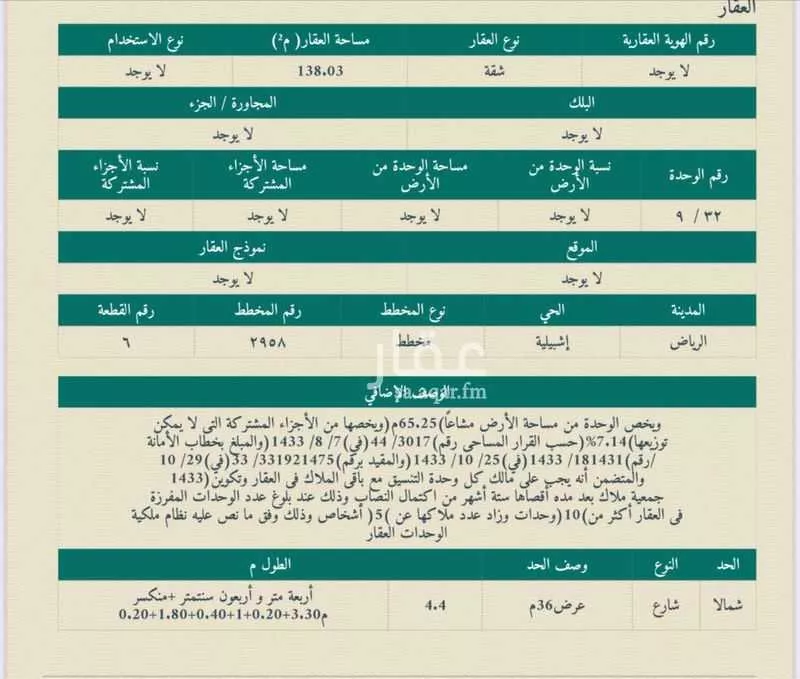 العقار
رقم الهوية العقارية نوع العقار مساحة العقار( م²) نوع الاستخدام
لا يوجد شقة 138.03 لا يوجد
البلك المجاورة / الجزء
لا يوجد لا يوجد
رقم الوحدة نسبة الوحدة من الأرض مساحة الوحدة من الأرض مساحة الأجزاء المشتركة نسبة الأجزاء المشتركة
٣٢ / ٩ لا يوجد لا يوجد لا يوجد لا يوجد
الموقع نموذج العقار
لا يوجد لا يوجد
المدينة الحي نوع المخطط رقم المخطط رقم القطعة
الرياض إشبيلية مخطط ٢٩٥٨ ٦
عقار
sa.aqar.fm
الوصف الإضافي
ويخص الوحدة من مساحة الأرض مشاعاً)65.25م(ويخصها من الأجزاء المشتركة التى لا يمكن
توزيعها)7.14%(حسب القرار المساحى رقم)3017/ 44(في)7/ 8/ 1433(والمبلغ بخطاب الأمانة
/رقم)181431/ 1433(في)25/ 10/ 1433(والمقيد برقم)331921475/ 33(في)29/ 10
والمتضمن أنه يجب على مالك كل وحدة التنسيق مع باقى الملاك فى العقار وتكوين(1433
جمعية ملاك بعد مده أقصاها ستة أشهر من اكتمال النصاب وذلك عند بلوغ عدد الوحدات المفرزة
فى العقار أكثر من)10(وحدات وزاد عدد ملاكها عن )5( أشخاص وذلك وفق ما نص عليه نظام ملكية
الوحدات العقار
الحد النوع وصف الحد الطول م
شمالا شارع عرض36م 4.4 أربعة متر و أربعون سنتمتر +منكسر
م3.30+0.20+1+0.40+1.80+0.20